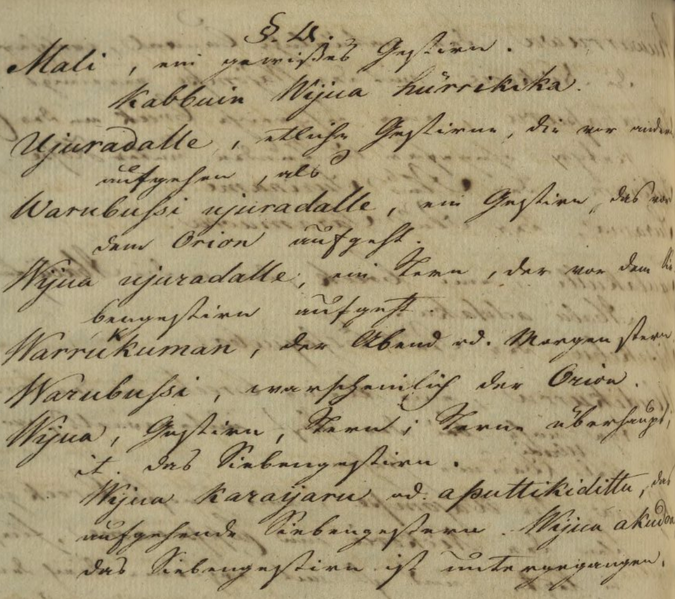 §. 4.
Mali, ein gewißes Gestirn.
Kabbuin Wijua hürrikika.
Ujuradalle, etliche Gestirne, die vor andern
aufgehen, als
Warubussi ujuradalle, ein Gestirn, das vor
dem Orion aufgeht.
Wijua ujuradalle, ein Stern, der vor dem Sie
bengestirn aufgeht.
Warrukkuman, der Abend od. Morgenstern
Warubussi, warscheinlich der Orion.
Wijua, Gestirn, Stern; Sterne überhaupt;
it. das Siebengestirn.
Wijua karaijaru od. aputtikiditta, das
aufgehende Siebengestirn. Wijua akudon
das Siebengestirn ist untergegangen.